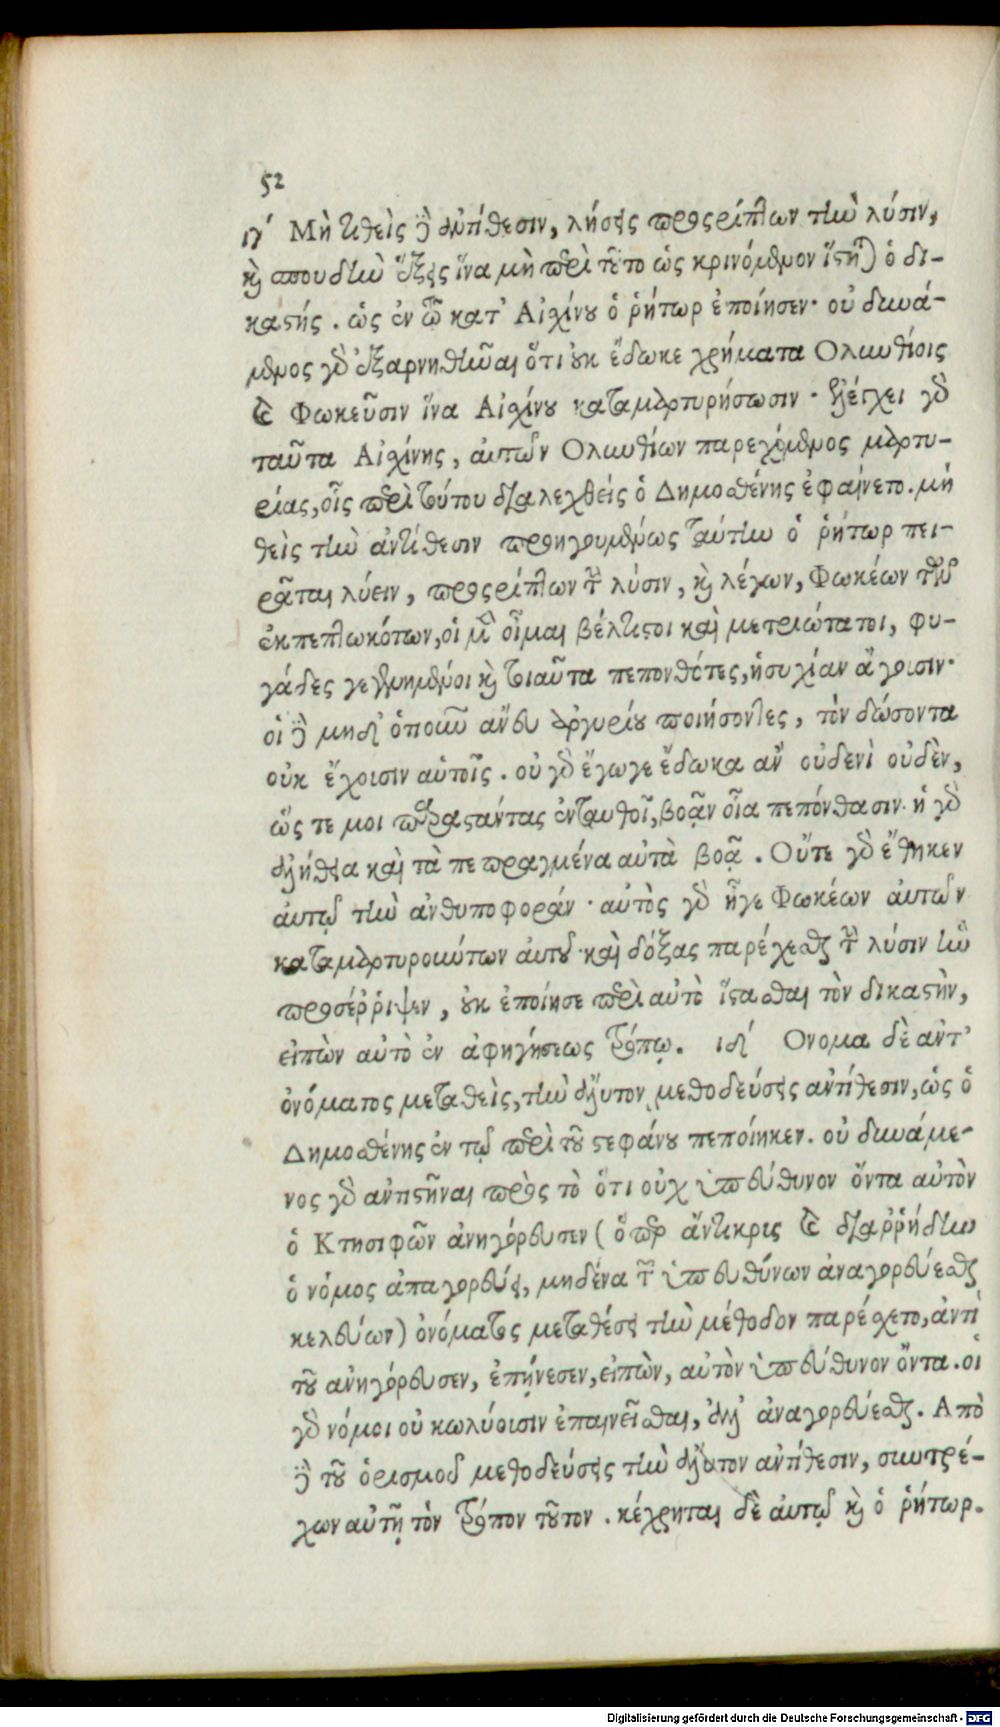 52
ιγ´ Μὴ τιθεὶς δὲ ἀντίθεσιν, λήσεις προσρίπτων τὴν λύσιν,
καὶ σπουδὴν ἕξεις ἵνα μὴ περὶ τοῦτο ὡς κρινόμενον ἵστηται ὁ δι-
καστής. ὡς ἐν τῷ κατ' Αἰσχίνου ὁ ῥήτωρ ἐποίησεν· οὐ δυνά-
μενος γὰρ ἐξαρνηθῆναι ὅτι οὐκ ἔδωκε χρήματα Ολυνθίοις
καὶ Φωκεῦσιν ἵνα Αἰσχίνου καταμαρτυρήσωσιν· ἐξελέγχει γὰρ
ταῦτα Αἰσχίνης, αὐτῶν Ολυνθίων παρεχόμενος μαρτυ-
ρίας, οἷς περὶ τούτου διαλεχθεὶς ὁ Δημοσθένης ἐφαίνετο. μὴ
θεὶς τὴν ἀντίθεσιν προηγουμένως ταύτην ὁ ῥήτωρ πει-
ρᾶται λύειν, προσρίπτων τὴν λύσιν, καὶ λέγων, Φωκέων τῶν
ἐκπεπτωκότων, οἱ μὲν οἶμαι βέλτιστοι καὶ μετριώτατοι, φυ-
γάδες γεγενημένοι καὶ τοιαῦτα πεπονθότες, ἡσυχίαν ἄγουσιν·
οἱ δὲ μηδ' ὁτιοῦν ἄνευ ἀργυρίου ποιήσοντες, τὸν δώσοντα
οὐκ ἔχουσιν αὐτοῖς. οὐ γὰρ ἔγωγε ἔδωκα ἂν οὐδενὶ οὐδὲν,
ὥς τε μοι παραστάντας ἐνταυθοῖ, βοᾷν οἷα πεπόνθασιν· ἡ γὰρ
ἀλήθεια καὶ τὰ πεπραγμένα αὐτὰ βοᾷ. Οὔτε γὰρ ἔθηκεν
αὐτῷ τὴν ἀνθυποφοράν· αὐτὸς γὰρ ἦγε Φωκέων αὐτῶν
καταμαρτυρούντων αὐτοῦ· καὶ δόξας παρέχεσθαι τὴν λύσιν ἣν
προσέῤῥιψεν, οὐκ ἐποίησε περὶ αὐτὸ ἵστασθαι τὸν δικαστὴν,
εἰπὼν αὐτὸ ἐν ἀφηγήσεως τρόπῳ. ιδ´ Ονομα δὲ ἀντ'
ὀνόματος μεταθεὶς, τὴν ἄλυτον μεθοδεύσεις ἀντίθεσιν, ὡς ὁ
Δημοσθένης ἐν τῷ περὶ τοῦ στεφάνου πεποίηκεν. οὐ δυνάμε-
νος γὰρ ἀντιστῆναι πρὸς τὸ ὅτι οὐχ ὑπεύθυνον ὄντα αὐτὸν
ὁ Κτησιφῶν ἀνηγόρευσεν (ὅπερ ἄντικρις καὶ διαῤῥήδην
ὁ νόμος ἀπαγορεύει, μηδένα τῶν ὑπευθύνων ἀναγορεύεσθαι
κελεύων) ὀνόματος μεταθέσει τὴν μέθοδον παρέσχετο, ἀντὶ
τοῦ ἀνηγόρευσεν, ἐπῄνεσεν, εἰπὼν, αὐτὸν ὑπεύθυνον ὄντα. οἱ
γὰρ νόμοι οὐ κωλύουσιν ἐπαινεῖσθαι, ἀλλ' ἀναγορεύεσθαι. Απὸ
δὲ τοῦ ὁρισμοῦ μεθοδεύσεις τὴν ἄλυτον ἀντίθεσιν, συντρέ-
χων αὐτῇ τὸν τρόπον τοῦτον. κέχρηται δὲ αὐτῷ καὶ ὁ ῥήτωρ.
Digitalisierung gefördert durch die Deutsche Forschungsgemeinschaft - DFG